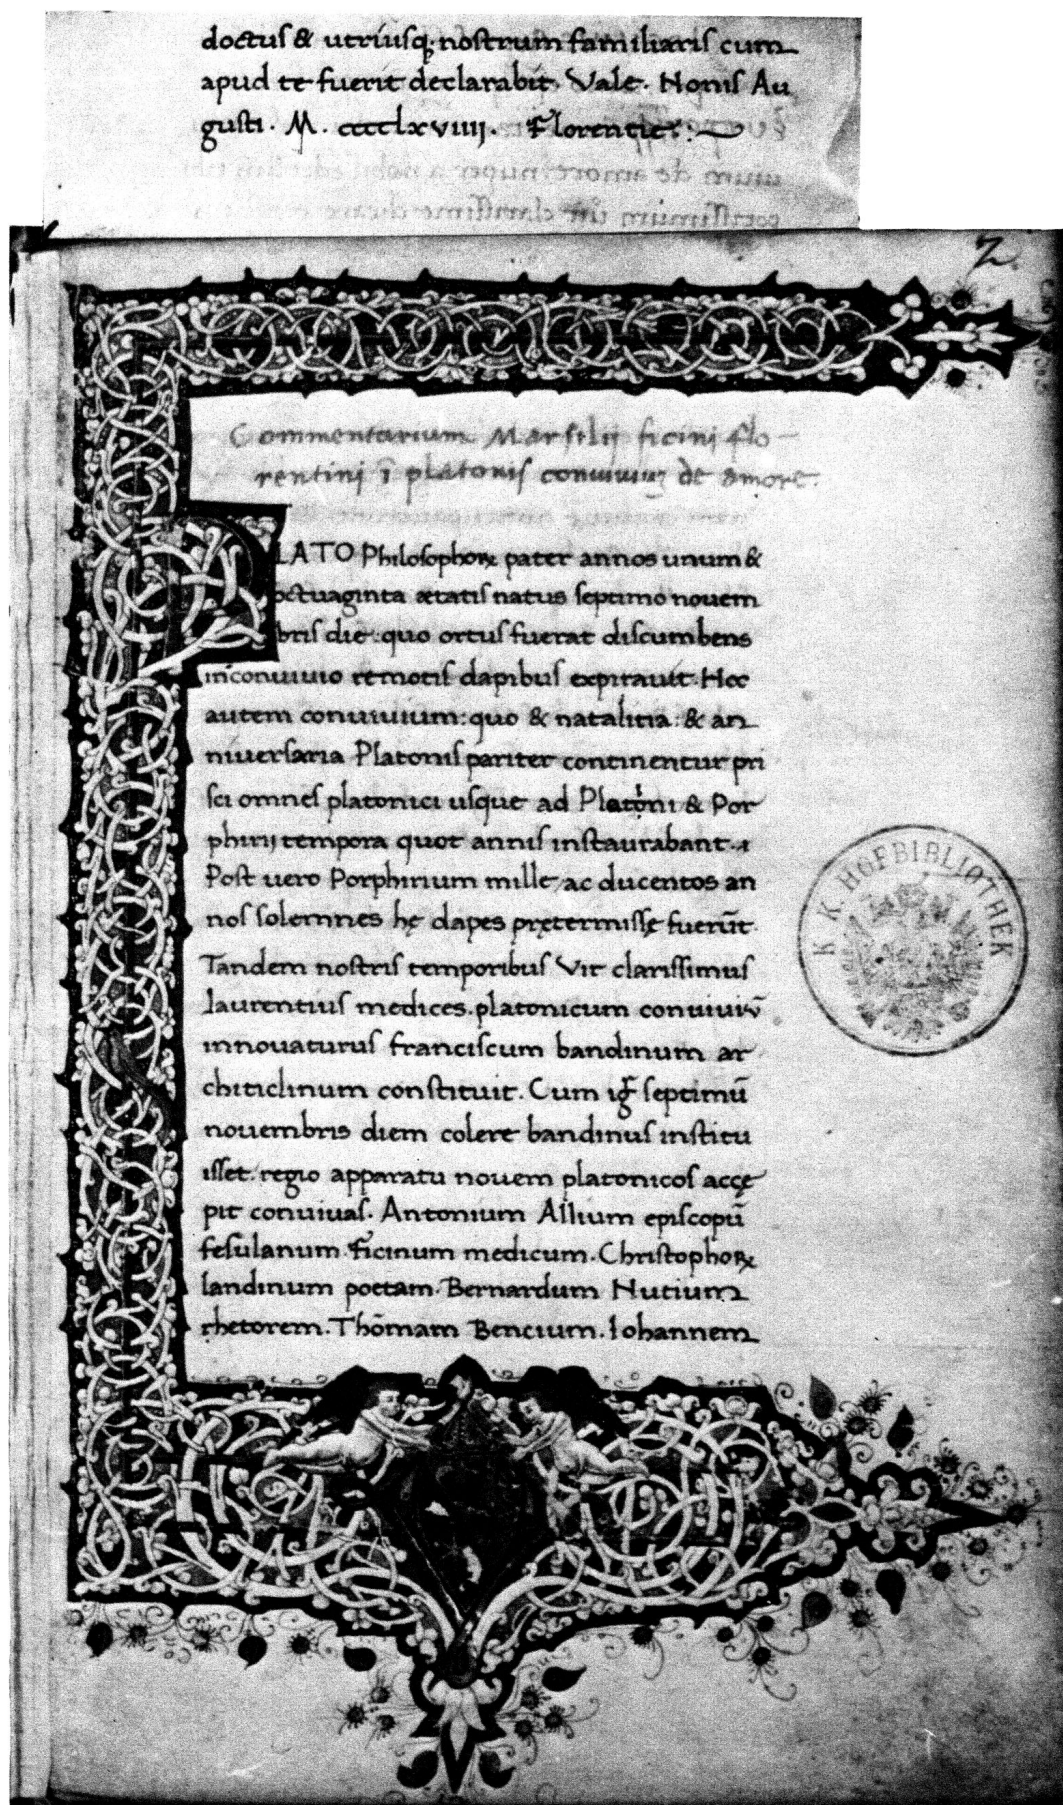 doctus & utriusq; nostrum familiaris cum
apud te fuerit declarabit. Vale. Nonis Au
gusti. M. cccclxviiij. Florentie.
2
Commentarium Marsilij ficini flo
rentini ī platonis conuiuiuȝ de amore.
PLATO Philosophoꝝ pater annos unum &
octuaginta ætatis natus septimo nouem
bris die: quo ortus fuerat discumbens
in conuiuio remotis dapibus expirauit. Hoc
autem conuiuium: quo & natalitia: & an
niuersaria Platonis pariter continentur pri
sci omnes platonici usque ad Platoni & Por
phirij tempora quot annis instaurabant.
Post uero Porphirium mille, ac ducentos an
nos solemnes hę dapes prętermissę fuerūt.
Tandem nostris temporibus Vir clarissimus
laurentius medices. platonicum conuiuiū
innouaturus franciscum bandinum ar
chiticlinum constituit. Cum igr̄ septimū
nouembris diem colere bandinus institu
isset. regio apparatu nouem platonicos accę
pit conuiuas. Antonium Allium episcopū
fesulanum. ficinum medicum. Christophoꝝ
landinum poetam. Bernardum Nutium
rhetorem. Thomam Bencium. Iohannem
K. K. HOFBIBLIOTHEK